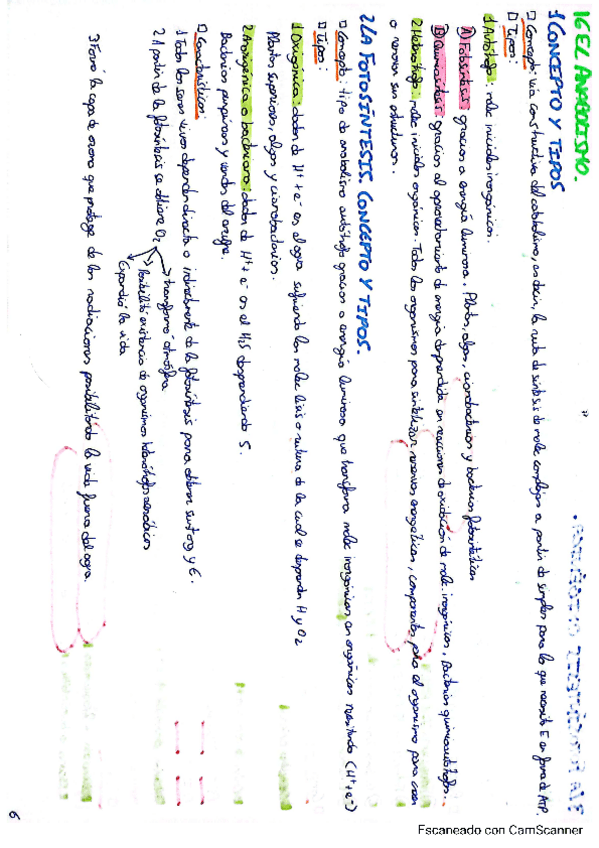 16 EL ANABOLISMO.
1 CONCEPTO Y TIPOS
Concepto: vía constructiva del catabolismo, es decir, la ruta de síntesis de molec complejas a partir de simples para lo que necesita E en forma de ATP.
Tipos:
1 Autótrofo: molec iniciales inorgánicas.
A) Fotosíntesis: gracias a energía luminosa. Plantas, algas, cianobacterias y bacterias fotosintéticas
B) Quimiosíntesis: gracias al aprovechamiento de energía desprendida en reacciones de oxidación de molec. inorgánicas, bacterias quimioautótrofas.
2 Heterótrofo: molec iniciales orgánicas. Todos los organismos para sintetizar reservas energéticas, componentes para el organismo para crecer
o renovar sus estructuras.
2 LA FOTOSÍNTESIS. CONCEPTO Y TIPOS.
Concepto: tipo de anabolismo autótrofo gracias a energía luminosa que transforma molec inorgánicas en orgánicas necesitando (H⁺+e⁻)
Tipos:
1 Oxigénica: dador de H⁺ + e⁻ es el agua sufriendo las molec lisis o rotura de la cual se desprenden H y O2
Plantas superiores, algas y cianobacterias.
2 Anoxigénica o bacteriana: dador de H⁺+e⁻ es el H2S desprendiendo S.
Bacterias purpúreas y verdes del azufre.
Características
1 Todos los seres vivos dependen directa o indirectamente de la fotosíntesis para obtener sust org y E.
2 A partir de la fotosíntesis se obtiene O2
transformó atmósfera
posibilitó existencia de organismos heterótrofos aeróbicos
Expandió la vida
3 Formó la capa de ozono que protege de las radiaciones posibilitando la vida fuera del agua.
6
Escaneado con CamScanner